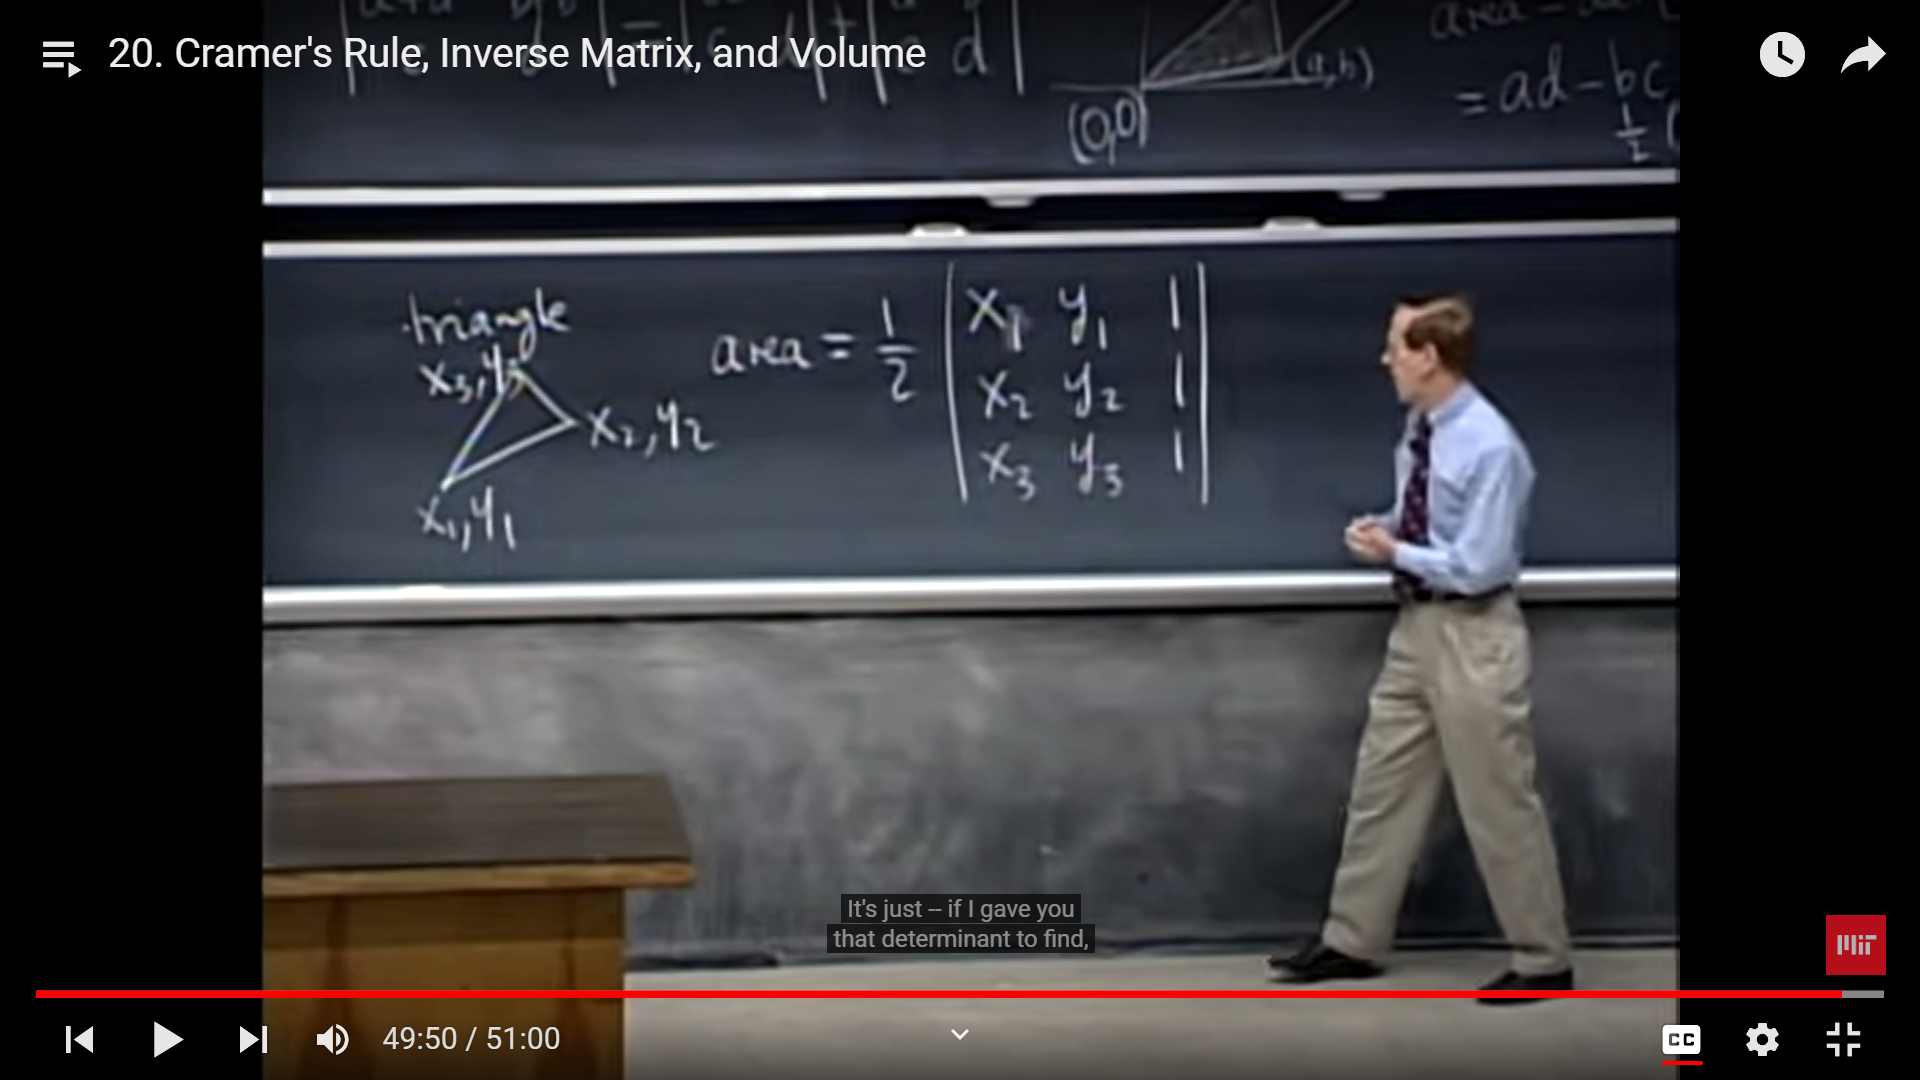 20. Cramer's Rule, Inverse Matrix, and Volume
(0,0)
(a,b)
= ad - bc
1/2 (
triangle
x3,y3
x2,y2
x1,y1
area = 1/2
x1 y1 1
x2 y2 1
x3 y3 1
It's just -- if I gave you
that determinant to find,
MIT
49:50 / 51:00
CC